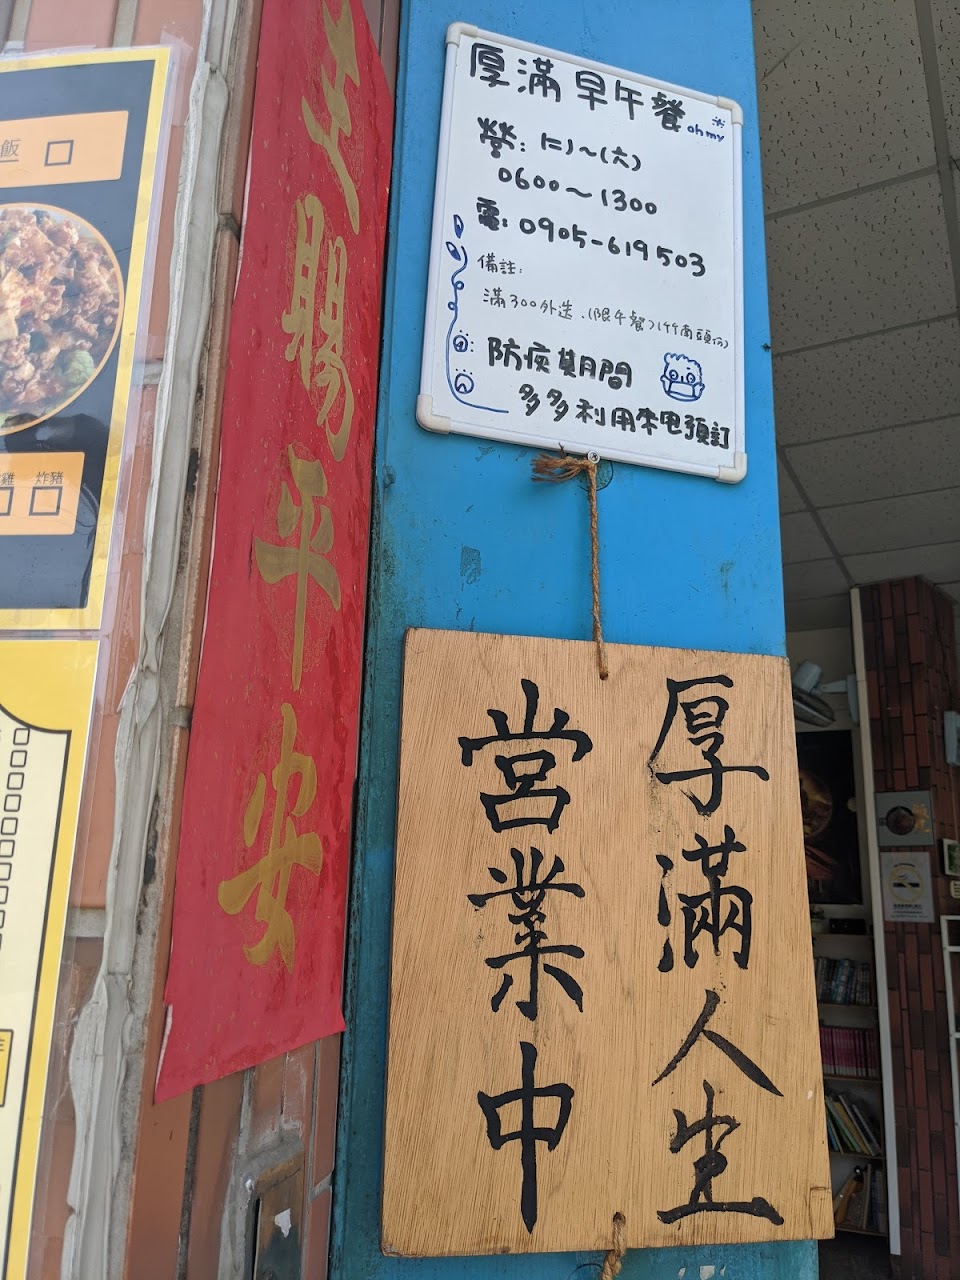 飯 □
雞 炸豬
□ □
主賜平安
厚滿早午餐 oh my
營: (二)~(六)
0600~1300
電: 0905-619503
備註:
滿300外送.(限午餐)(竹南頭份)
防疫期間
多多利用來电預訂
厚滿人生
營業中